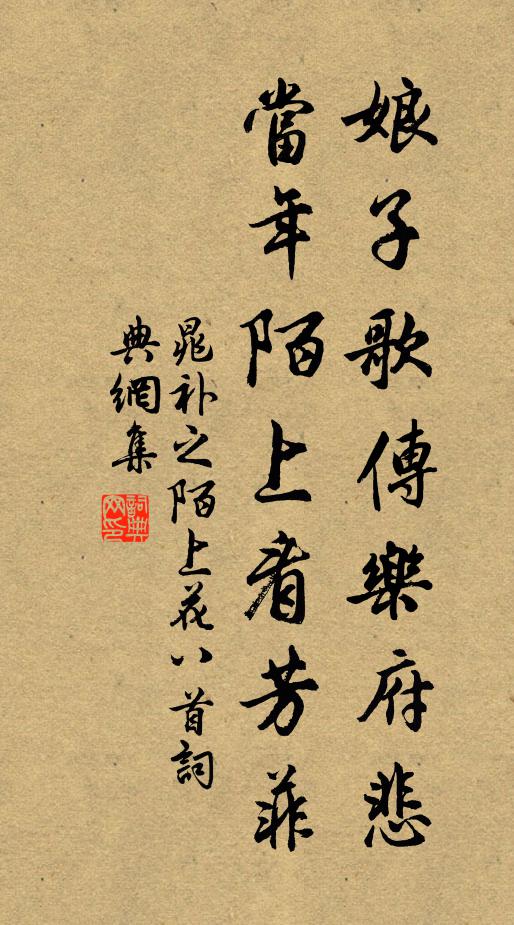 娘子歌傳樂府悲
當年陌上看芳菲
晁補之陌上花八首詞
典網集
詞典網印